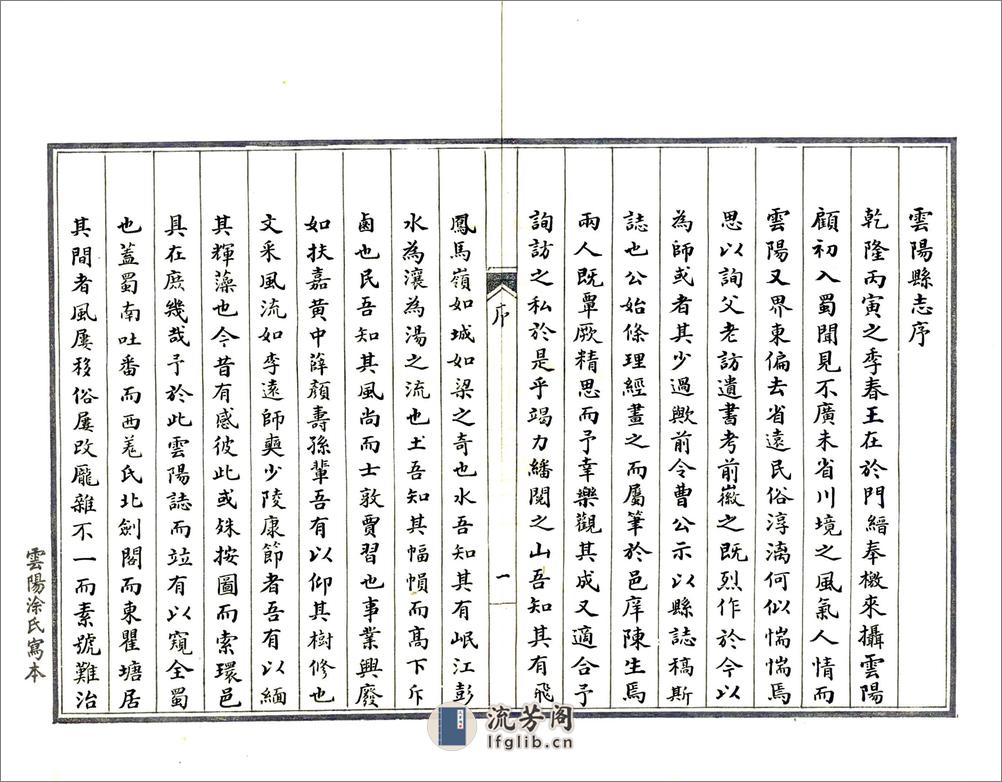 雲陽縣志序
乾隆丙寅之季春王在於門縉奉檄來攝雲陽
顧初入蜀聞見不廣未省川境之風氣人情而
雲陽又界東偏去省遠民俗淳漓何似惴惴焉
思以詢父老訪遺書考前徽之既烈作於今以
為師或者其少過歟前令曹公示以縣誌稿斯
誌也公始條理經畫之而屬筆於邑庠陳生焉
兩人既覃厥精思而予幸樂觀其成又適合予
詢訪之私於是乎竭力繙閱之山吾知其有飛
序
一
鳳馬嶺如城如梁之奇也水吾知其有岷江彭
水為瀼為湯之流也土吾知其幅幀而高下斥
鹵也民吾知其風尚而士敦賈習也事業興廢
如扶嘉黃中薛顏壽孫輩吾有以仰其樹修也
文采風流如李遠師奭少陵康節者吾有以緬
其輝藻也今昔有感彼此或殊按圖而索環邑
具在庶幾哉予於此雲陽誌而竝有以窺全蜀
也蓋蜀南吐番而西羌氏北劍閣而東瞿塘居
其間者風屢移俗屢改龎雜不一而素號難治
雲陽涂氏寫本
流芳阁
lfglib.cn